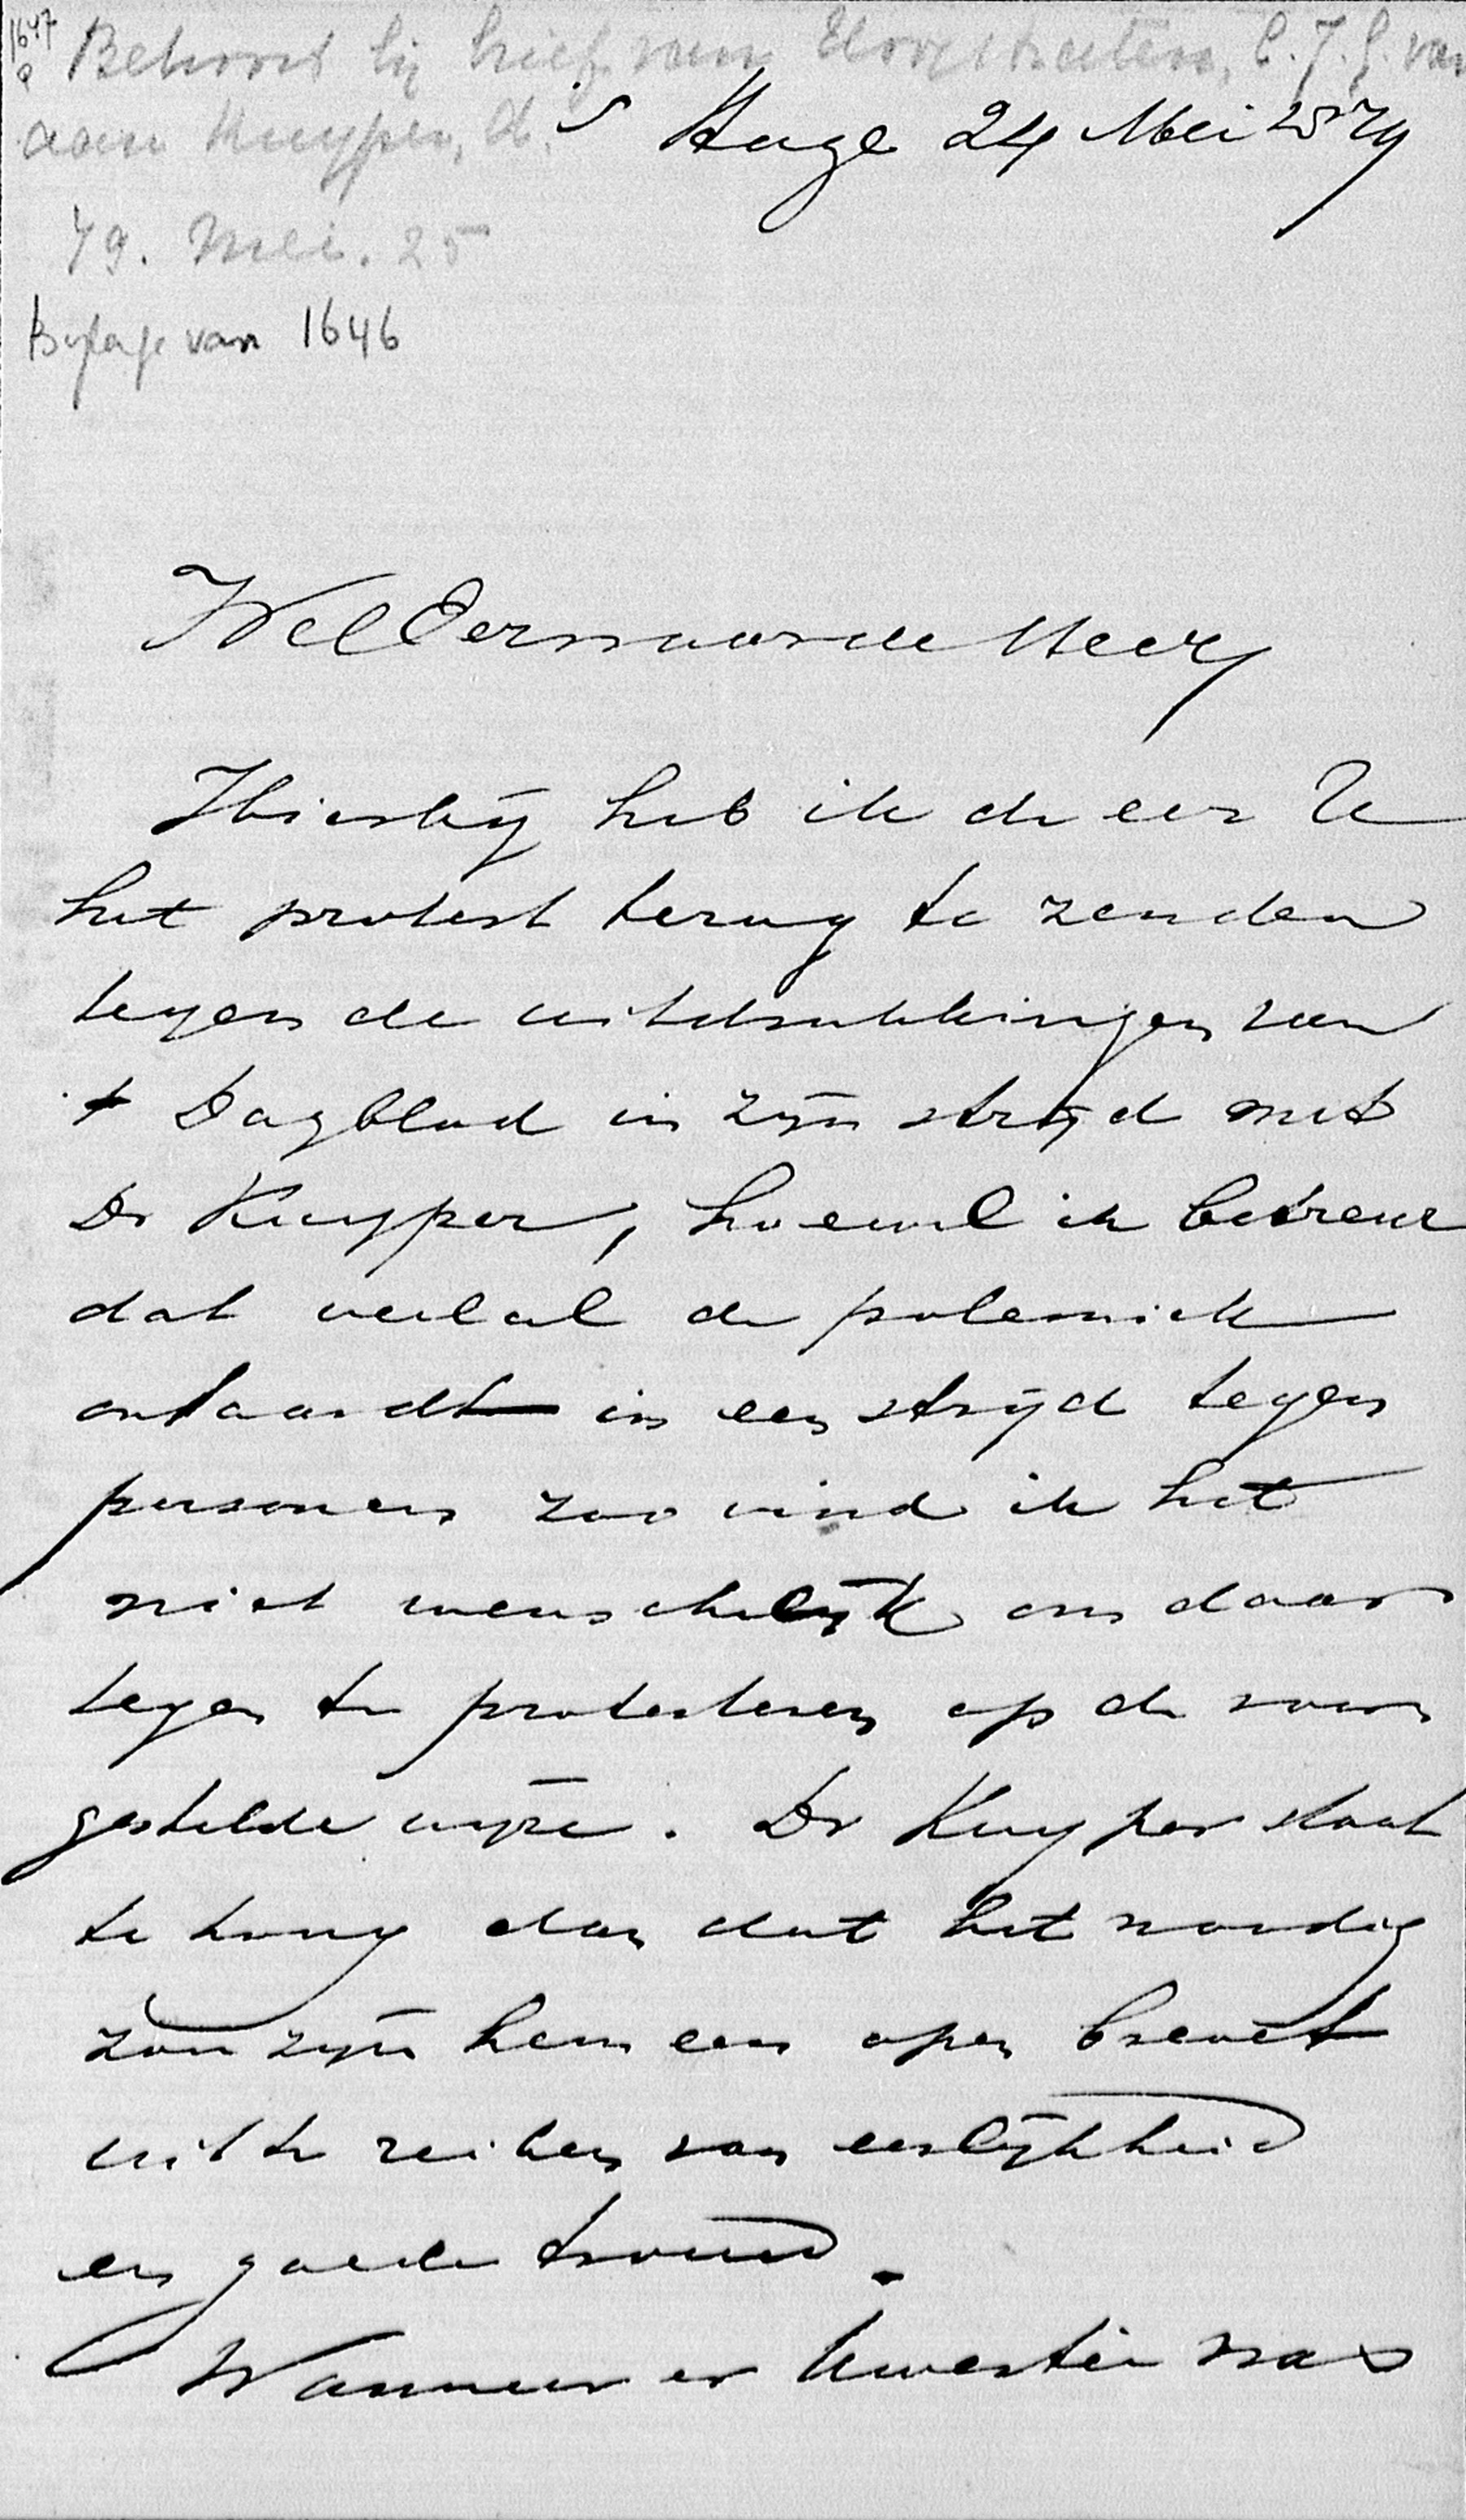 1647
a
Behoort bij brief van Hoogstraten, C.J.G. van
aan Kuyper, A.
79. Mei. 25
Bijlage van 1646
's Hage 24 Mei 1879
WelEerwaarde Heer
Hierbij heb ik de eer U
het protest terug te zenden
tegen de uitdrukkingen van
't Dagblad in zijn strijd met
Dr Kuyper, hoewel ik betreur
dat veelal de polemiek
ontaardt in een strijd tegen
personen zoo vind ik het
niet wenschelijk om daar
tegen te protesteren op de voor
gestelde wijze. Dr Kuyper staat
te hoog dan dat het noodig
zou zijn hem een open brevet
uit te reiken van eerlijkheid
en goede trouw.
Wanneer er kwestie was